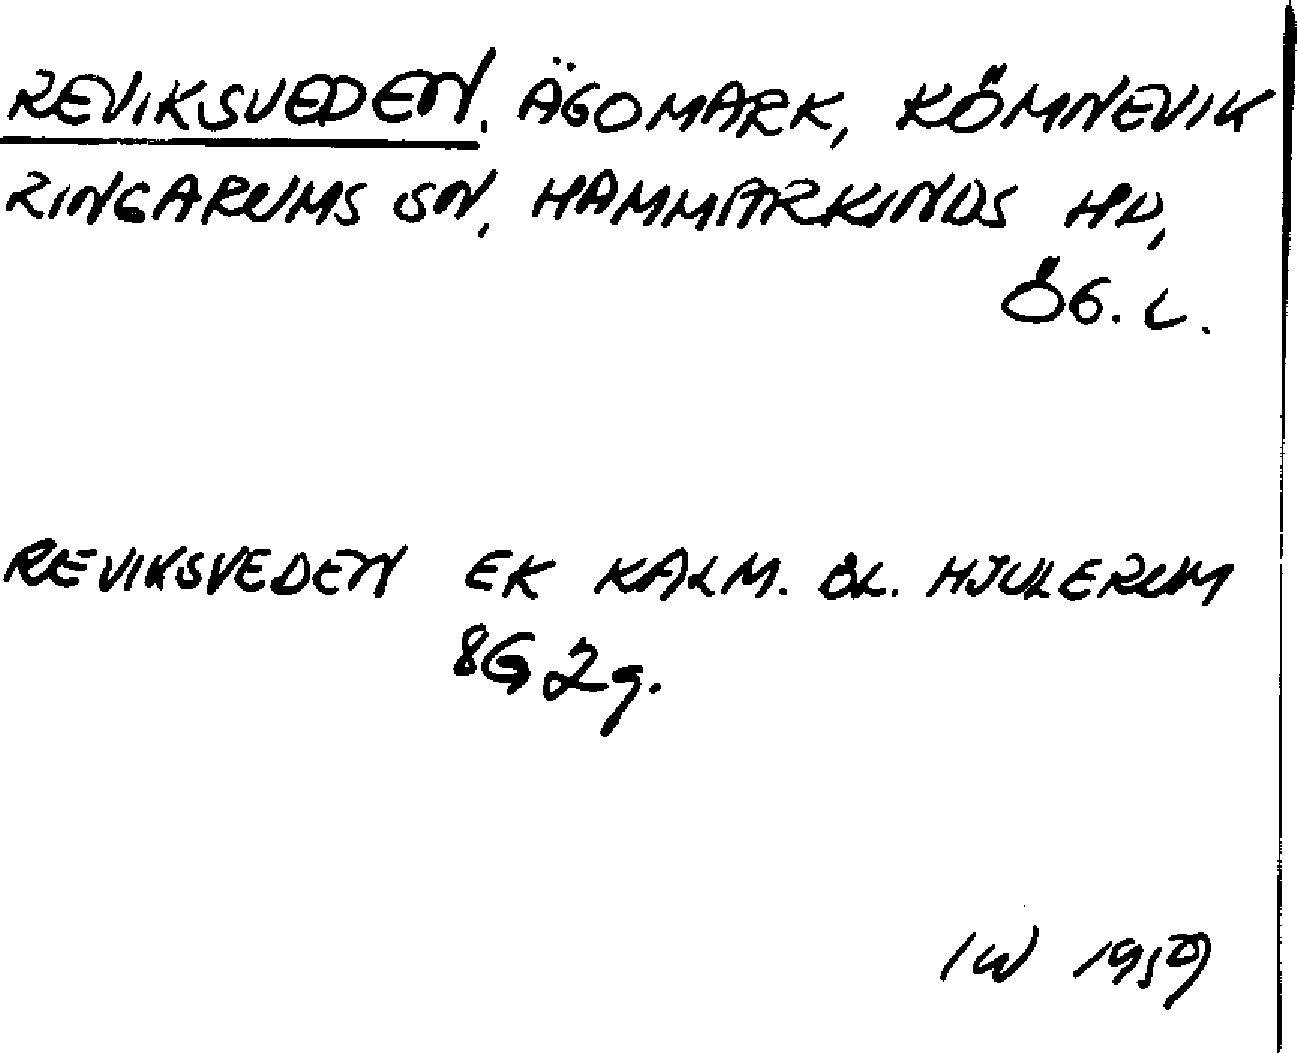 REVIKSVEDEN, ÄGOMARK, KÖMNEVIK
RINGARUMS SN, HAMMARKINDS HD,
ÖG. L.
REVIKSVEDEN EK KALM. BL. HJULERUM
8G 2g.
IW 1959